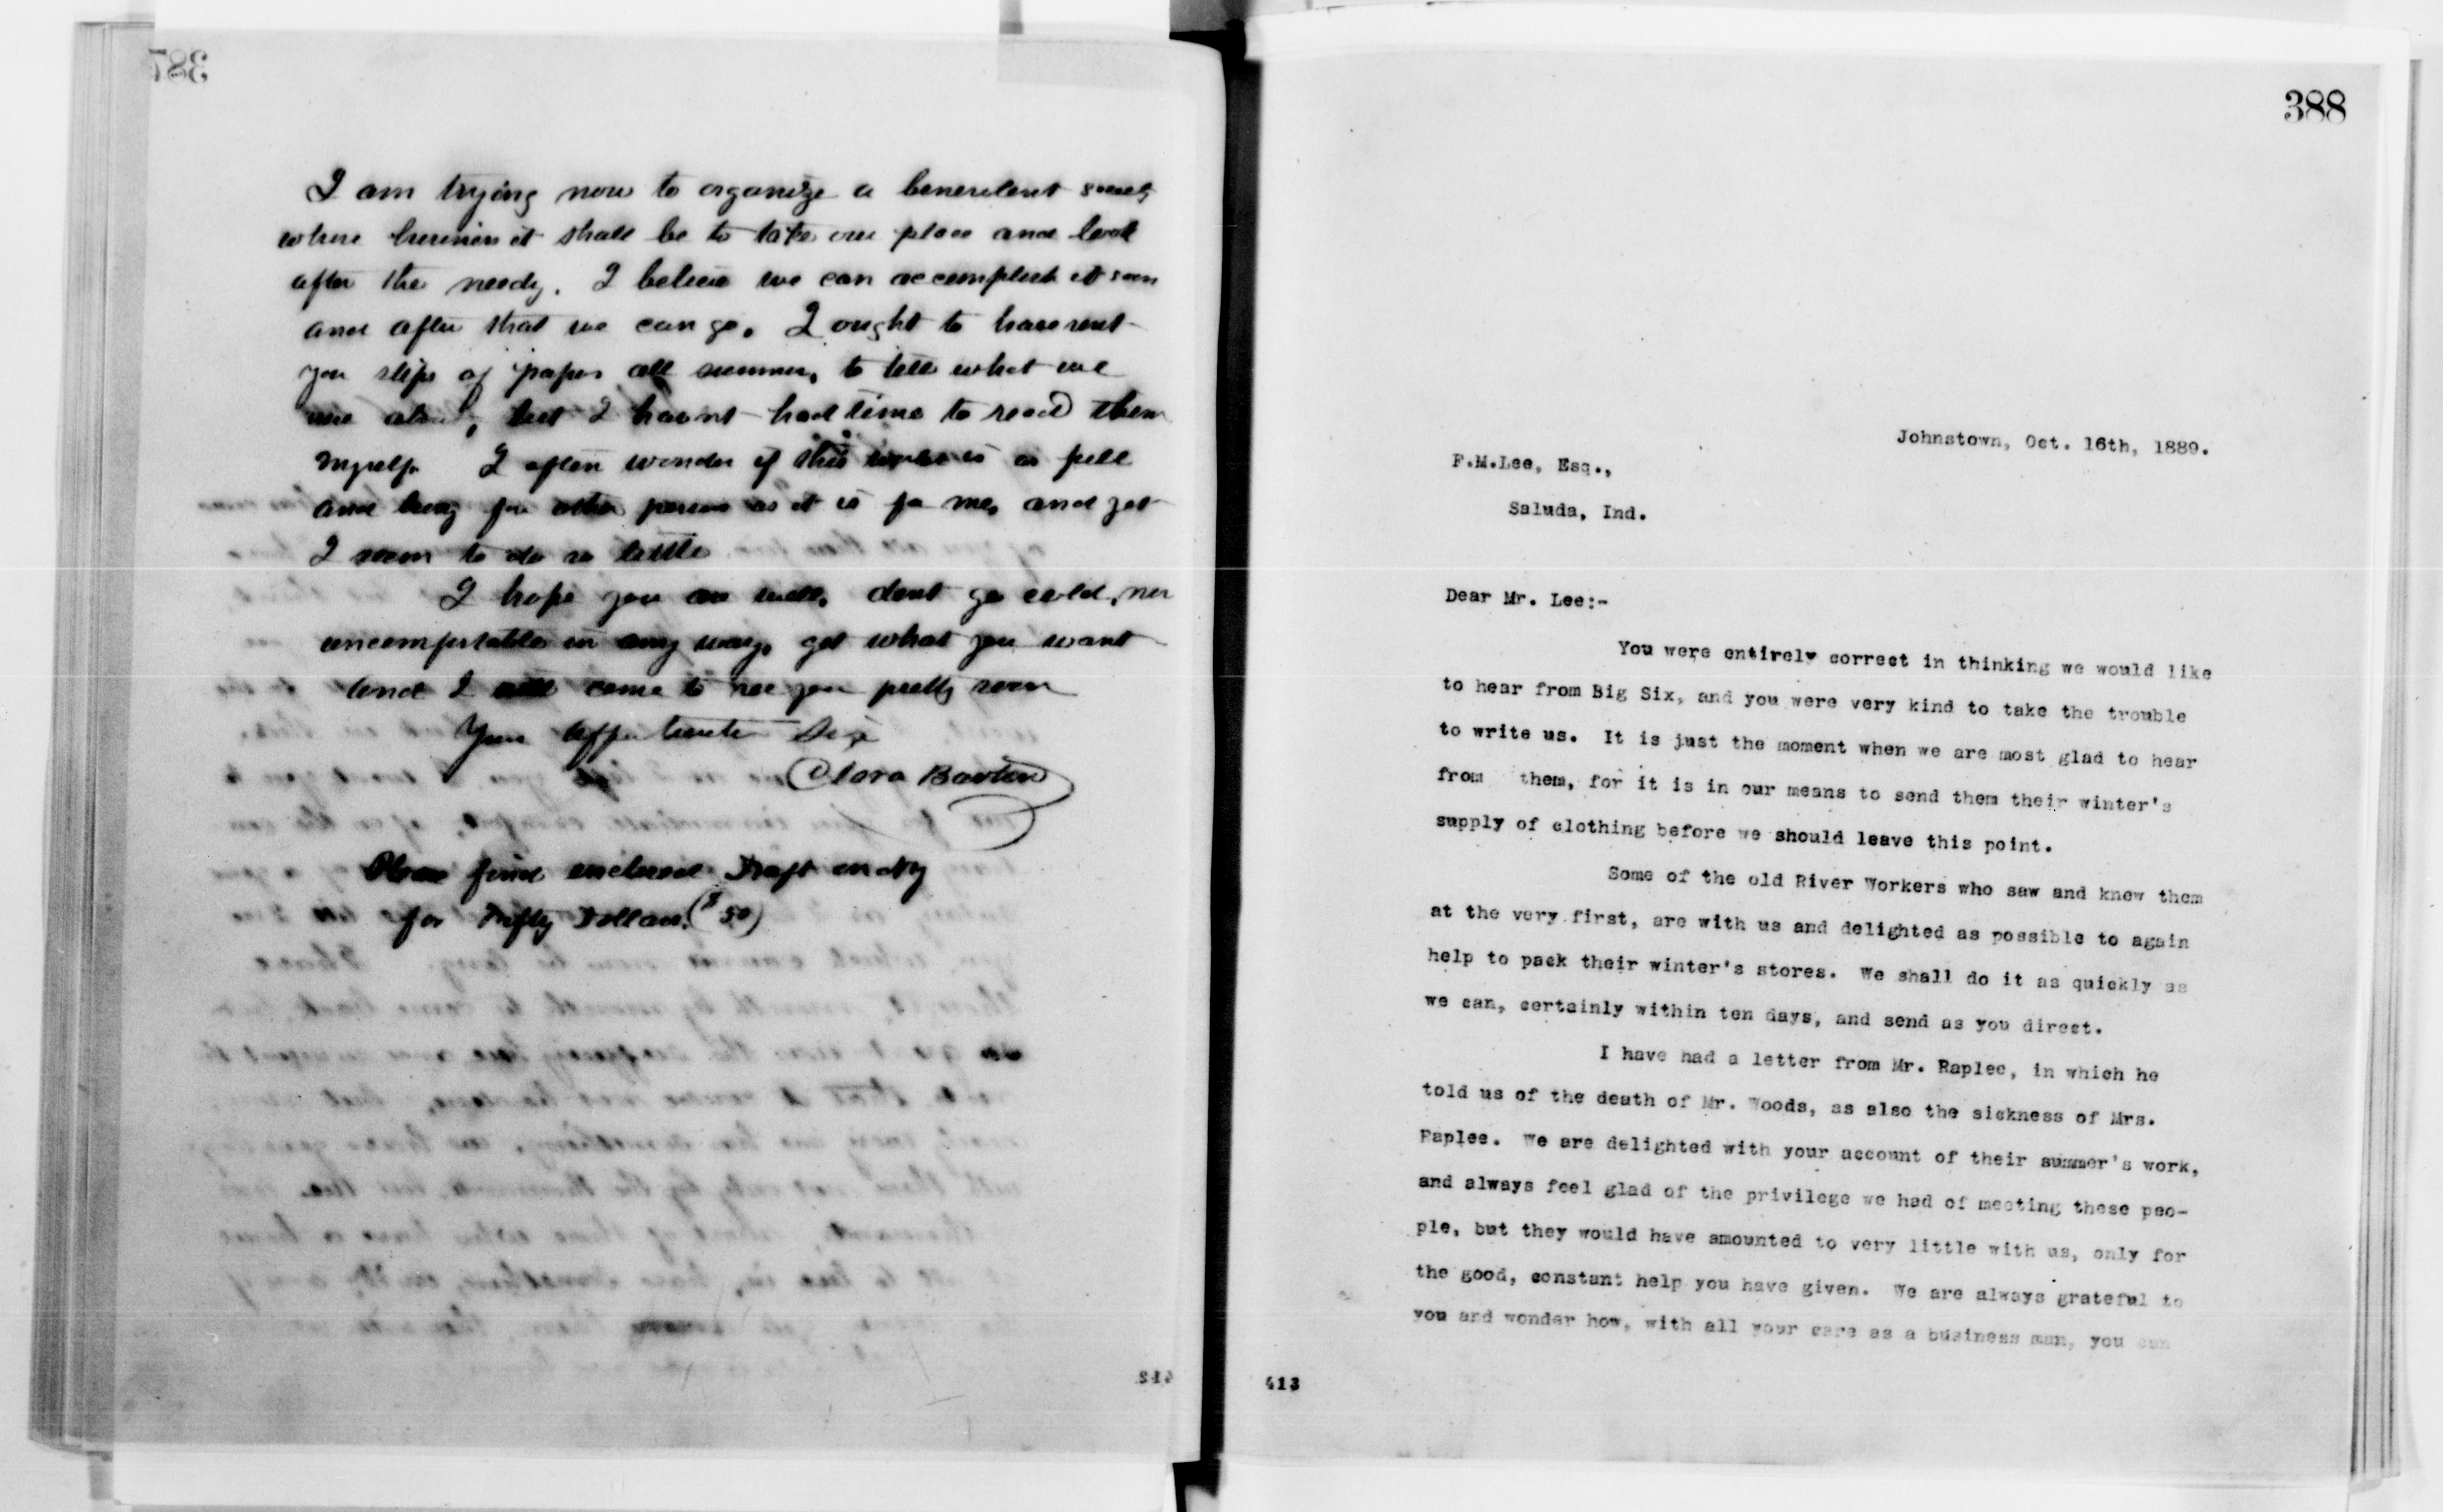 387
I am trying now to organize a benevolent society
whose business it shall be to take our place and look
after the needy. I believe we can accomplish it soon
and after that we can go. I ought to have sent
you slips of paper all summer, to tell what we
were about, but I havnt had time to read them
myself. I often wonder if this world is as full
and busy for other persons as it is for me, and yet
I seem to do so little
I hope you are well, dont go cold, nor
uncomfortable in any way, get what you want
and I will come to see you pretty soon
Your affectionate Sis
Clara Barton
Please find enclosed Draft on NY
for Fifty Dollars. ($50)
412
388
Johnstown, Oct. 16th, 1889.
F.M.Lee, Esq.,
Saluda, Ind.
Dear Mr. Lee:-
You were entirely correct in thinking we would like
to hear from Big Six, and you were very kind to take the trouble
to write us. It is just the moment when we are most glad to hear
from them, for it is in our means to send them their winter's
supply of clothing before we should leave this point.
Some of the old River Workers who saw and knew them
at the very first, are with us and delighted as possible to again
help to pack their winter's stores. We shall do it as quickly as
we can, certainly within ten days, and send as you direct.
I have had a letter from Mr. Raplee, in which he
told us of the death of Mr. Woods, as also the sickness of Mrs.
Raplee. We are delighted with your account of their summer's work,
and always feel glad of the privilege we had of meeting these peo-
ple, but they would have amounted to very little with us, only for
the good, constant help you have given. We are always grateful to
you and wonder how, with all your care as a business man, you can
413